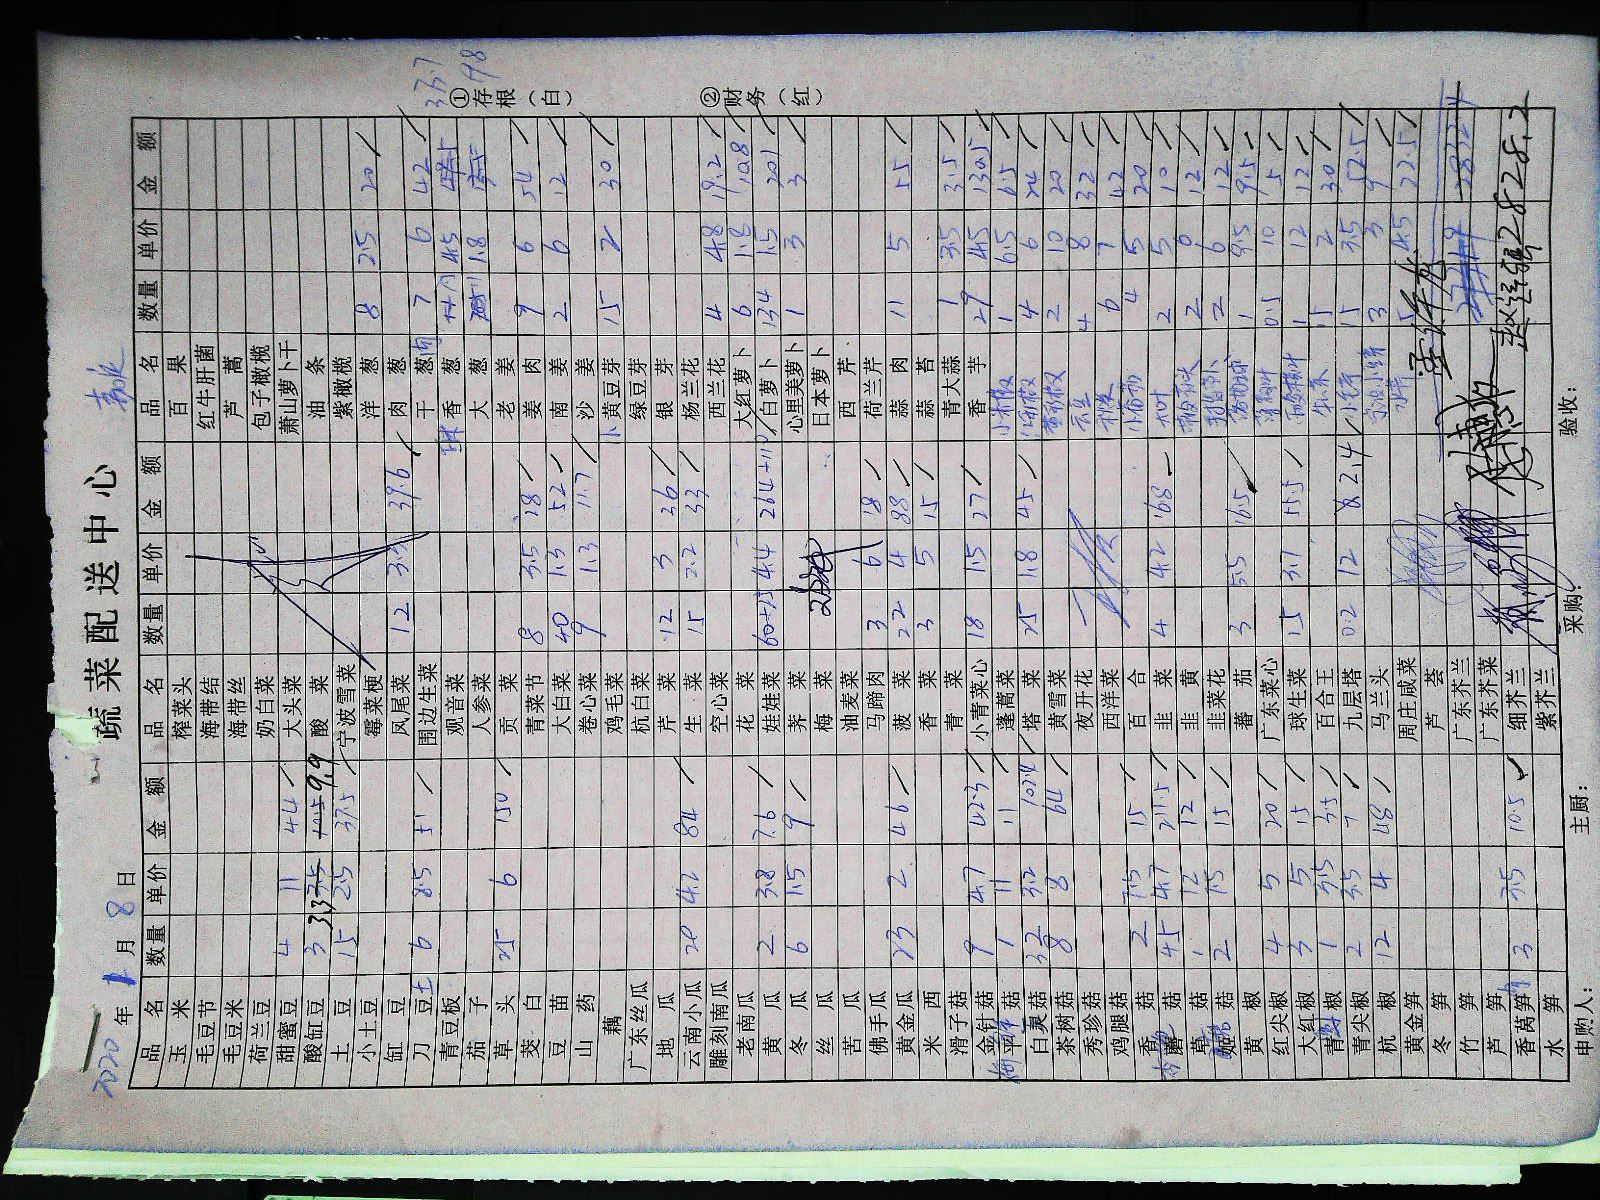 蔬菜配送中心
2020年1月8日
品名 数量 单价 金额 品名 数量 单价 金额 品名 数量 单价 金额
玉米 榨菜头 百果
毛豆节 海带结 红牛肝菌
毛豆米 海带丝 芦蒿
荷兰豆 奶白菜 包子橄榄
甜蜜豆 4 11 44 大头菜 萧山萝卜干
酸缸豆 3 3.3 9.9 酸菜 油条
土豆 15 2.5 37.5 宁波雪菜 紫橄榄
小土豆 霉菜梗 洋葱 8 2.5 20
缸豆 凤尾菜 12 3.3 39.6 肉葱
刀豆 6 8.5 51 围边生菜 干葱 7 6 42
青豆板 观音菜 香葱 4.5
茄子 人参菜 大葱 1.8
草头 25 6 150 贡菜 老姜 9 6 54
茭白 青菜节 8 3.5 28 姜肉
豆苗 大白菜 40 1.3 52 南姜 2 6 12
山药 卷心菜 9 1.3 11.7 沙姜
藕 鸡毛菜 黄豆芽 15 2 30
广东丝瓜 杭白菜 绿豆芽
地瓜 芹菜 12 3 36 银芽
云南小瓜 20 4.2 84 生菜 15 2.2 33 杨兰花
雕刻南瓜 空心菜 西兰花 4 4.8 19.2
老南瓜 花菜 大红萝卜 6 1.8 10.8
黄瓜 2 3.8 7.6 娃娃菜 4.4 白萝卜 134 1.5 201
冬瓜 6 1.5 9 荠菜 心里美萝卜 1 3 3
丝瓜 梅菜 日本萝卜
苦瓜 油麦菜 西芹
佛手瓜 马蹄肉 3 6 18 荷兰芹
黄金瓜 23 2 46 菠菜 22 4 88 蒜肉 11 5 55
米西 香菜 3 5 15 蒜苔
滑子菇 青菜 青大蒜 1 3.5 3.5
金针菇 9 4.7 42.3 小青菜心 18 1.5 27 香芋 29 4.5 130.5
菇 1 11 11 蓬蒿菜 小米椒 1 6.5 6.5
白灵菇 32 3.2 102.4 塔菜 25 1.8 45 4 6 24
茶树菇 8 8 64 黄雪菜 2 10 20
秀珍菇 夜开花 4 8 32
鸡腿菇 西洋菜 6 7 42
香菇 2 7.5 15 百合 4 5 20
蘑菇 4.5 4.7 21.5 韭菜 4 4.2 16.8 2 5 10
草菇 1 12 12 韭黄 2 6 12
姬菇 2 7.5 15 韭菜花 2 6 12
黄椒 蕃茄 3 5.5 16.5 1 9.5 9.5
红尖椒 4 5 20 广东菜心 0.5 10 5
大红椒 3 5 15 球生菜 15 3.7 55.5 1 12 12
青椒 1 5.5 5.5 百合王 15 2 30
青尖椒 2 3.5 7 九层塔 0.2 12 2.4 15 3.5 52.5
杭椒 12 4 48 马兰头 3 3 9
黄金笋 周庄咸菜 水芹 5 4.5 22.5
冬笋 芦荟
竹笋 广东芥兰
芦笋 广东芥菜
香莴笋 3 3.5 10.5 细芥兰 2828.2
水笋 紫芥兰
申购人： 主厨： 采购： 验收：
①存根（白）
②财务（红）